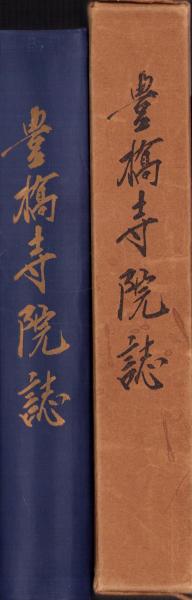 豊橋寺院誌
豊橋寺院誌